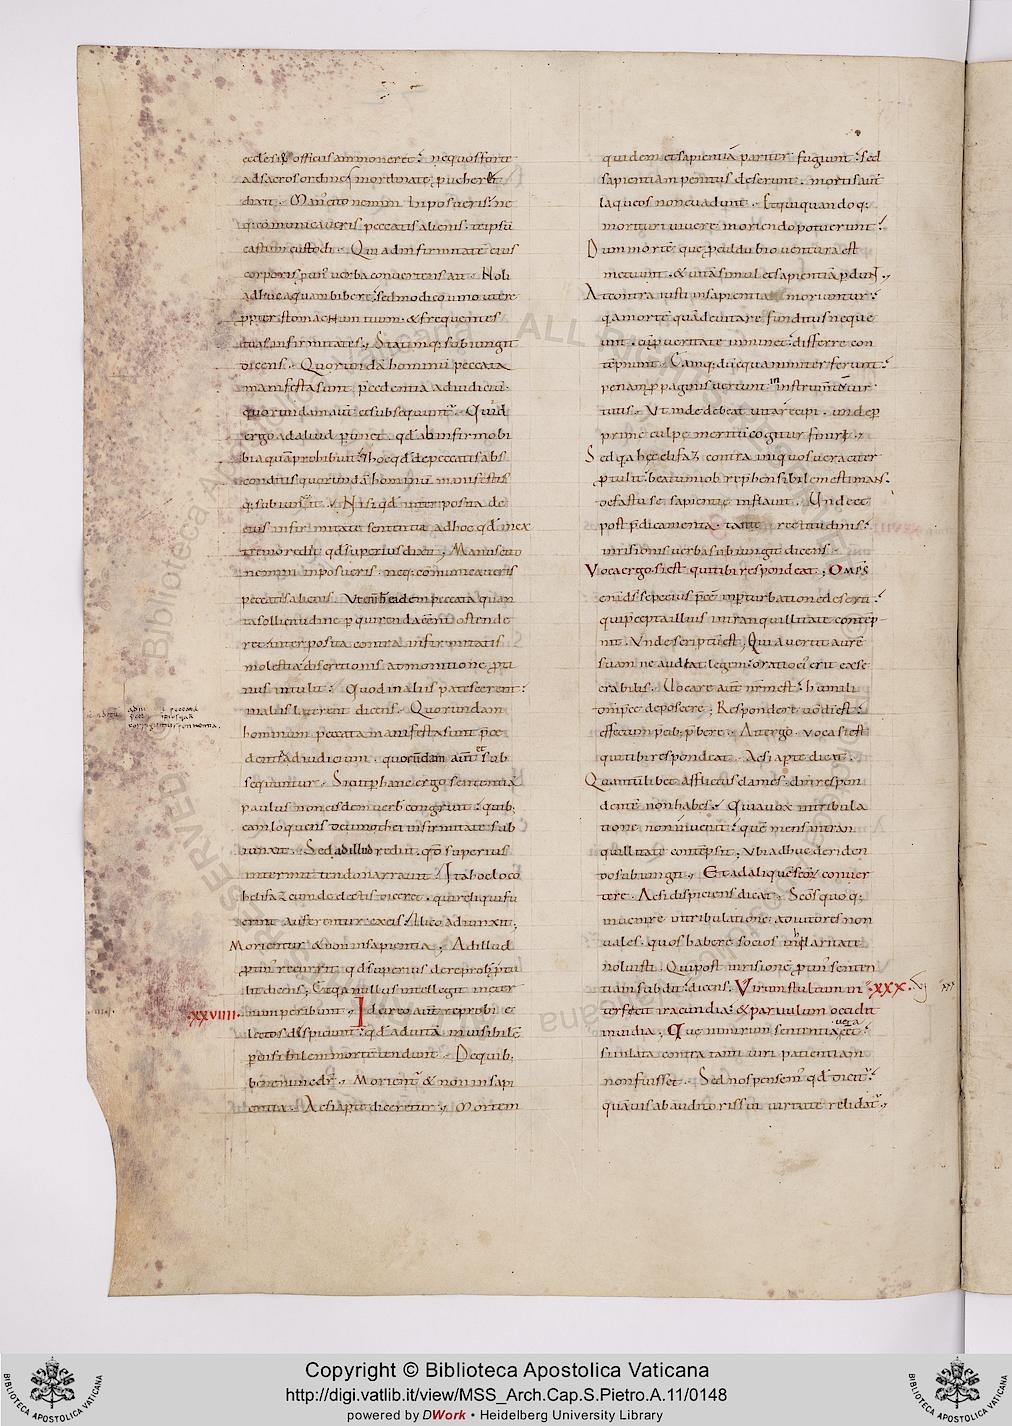 ecclesię officiis ammoneret: ne quos forte
ad sacros ordines inordinate puehere&
dixit. Manu cito nemini inposueris: ne
q; cōmunicaveris peccatis alienis. te ipsū
castum custodi. Qui ad infirmitatē eius
corporis verba convertens ait. Noli
adhuc aquam bibere: sed modico vino utere
propter stomachum tuum. & frequentes
tuas infirmitates; Statimq; subiungit
dicens. Quorundā hominū peccata
manifesta sunt p̄cedentia ad iudiciū.
quorundam aut̄ et subsequunt̄. Quid
ergo ad aliud p̄tinet. qd̄ ab infirmo bi
bi aquā prohibuit. hoc qd̄ de peccatis abs
conditis quorundā hominū manifestis
q; subiunxit; Nisi qd̄ interposita de
eius infirmitate sententia ad hoc qd̄ in ex
tremo redit. qd̄ superius dixit; Manus cito
nemini inposueris. neq; cōmunicaveris
peccatis alienis. Ut enī heidem peccata quan
ta sollicitudine p̄quirenda eēnt ostende
ret. interposita contra infirmitatis
molestia discretionis admonitione proti
nus intulit. Quod in aliis patescerent:
in aliis laterent dicens. Quorundam
hominum peccata manifesta sunt p̄ce
dentia ad iudicium. quorundam aut̄ et sub
sequuntur. Sicut p̄ hanc ergo sententiā
paulus non eisdem verbis congruit: quib;
eam loquens de timothei infirmitate sub
iunxit. Sed ad illud rediit. qd̄ superius
intermittendo narravit; Ita hoc loco
helifaz cum de electis diceret. qui reliqui fu
erint auferentur ex eis: ilico adiunxit;
Morientur & non in sapientia; Ad illud
protinus recurrit qd̄ superius de reprobis p̄tu
lit dicens; Et qa nullus intellegit in eter
num peribunt. Idcirco aut̄ reprobi e
lectos despiciunt: qd̄ ad vitā invisibilē
p̄ visibilem mortē tendunt. De quib;
bene nunc dr̄; Morient̄ & non in sapi
entia. Ac si apte diceretur; Mortem
quidem et sapientiā pariter fugiunt: sed
sapientiam penitus deserunt. mortis aut̄
laqueos non evadunt. Et qui quandoq;
morituri vivere moriendo potuerunt:
Dum mortē que p̄cul dubio ventura est
metuunt. & vitā simul et sapientiā p̄dunt;
At contra iusti in sapientia moriuntur:
qa mortē quā devitare funditus neque
unt. cū p̄ veritate inminet: differre con
tēpnunt. Eamq; dū equanimiter ferunt:
penam p̄paginis vertunt in instrum̄ vir
tutis. Ut inde debeat vita recipi. unde p̄
prime culpe meritū cogitur finiri;
Sed qa hęc elifaz contra iniquos veraciter
p̄tulit: beatum iob rep̄hensibilem estimans.
de fastu se sapientię inflavit. Unde et
post p̄dicamenta tante rectitudinis:
inrisionis verba subiungit dicens.
Voca ergo si est qui tibi respondeat; Omp̄s
enī ds̄ sepe eius p̄cē in p̄turbatione deserit:
qui p̄cepta illius in tranquillitate contēp
nit. Unde scriptū est; Qui avertit aurē
suam ne audiat legem: oratio ei erit exse
crabilis. Vocare aut̄ nr̄m est: humili
omp̄ce deposcere; Respondere v̄o dī est:
effectum p̄cib; p̄bere. Ait ergo. voca si est
qui tibi respondeat. Ac si apte dicat.
Quantūlibet afflictus clames. dm̄ respon
dentē non habes. Quia vox in tribula
tione non invenit: quē mens in tran
quillitate contēpsit; Ubi adhuc deriden
do subiungit. Et ad aliquē scōrū conver
tere. Ac si dispiciens dicat. Scōs quoq;
invenire in tribulatione adiutores non
vales. quos habere socios in hilaritate
noluisti. Qui post inrisionē protinus senten
tiam subdit: dicens. Virum stultum in
terficit iracundia: & parvulum occidit
invidia; Que nimirum sententia vera eēt:
si illata contra tanti viri patientiam
non fuisset. Sed nos pensem̄ qd̄ dicit̄:
quāvis ab auditoris sui virtute relidat̄;
.xxviiii.
.xxx.
Copyright © Biblioteca Apostolica Vaticana
http://digi.vatlib.it/view/MSS_Arch.Cap.S.Pietro.A.11/0148
powered by DWork • Heidelberg University Library
BIBLIOTECA APOSTOLICA VATICANA
BIBLIOTECA APOSTOLICA VATICANA